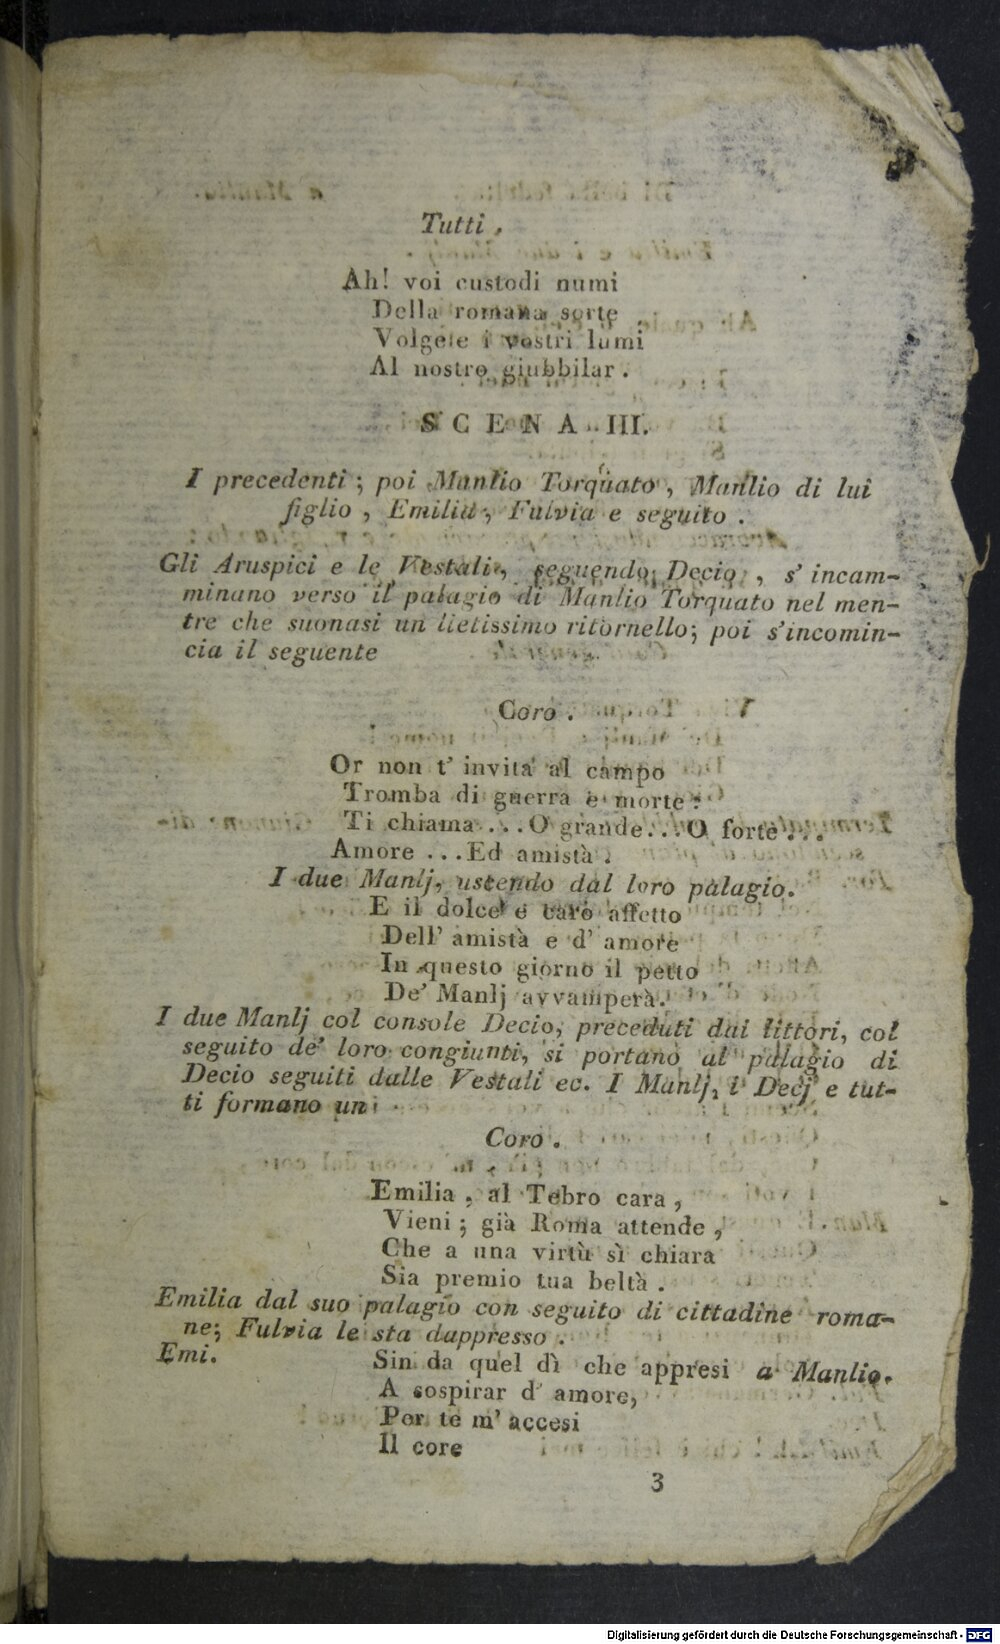 Tutti.
Ah! voi custodi numi
Della romana sorte
Volgete i vostri lumi
Al nostro giubbilar.
SCENA III.
I precedenti; poi Manlio Torquato, Manlio di lui
figlio, Emilia, Fulvia e seguito.
Gli Aruspici e le Vestali, seguendo Decio, s' incam-
minano verso il palagio di Manlio Torquato nel men-
tre che suonasi un lietissimo ritornello; poi s'incomin-
cia il seguente
Coro.
Or non t' invita al campo
Tromba di guerra e morte:
Ti chiama ... O grande... O forte ...
Amore ... Ed amistà.
I due Manlj, uscendo dal loro palagio.
E il dolce e caro affetto
Dell' amistà e d' amore
In questo giorno il petto
De' Manlj avvamperà.
I due Manlj col console Decio, preceduti dai littori, col
seguito de' loro congiunti, si portano al palagio di
Decio seguiti dalle Vestali ec. I Manlj, i Decj e tut-
ti formano un
Coro.
Emilia, al Tebro cara,
Vieni; già Roma attende,
Che a una virtù sì chiara
Sia premio tua beltà.
Emilia dal suo palagio con seguito di cittadine roma-
ne; Fulvia le sta dappresso.
Emi. Sin da quel dì che appresi a Manlio.
A sospirar d' amore,
Per te m' accesi
Il core
3
Digitalisierung gefördert durch die Deutsche Forschungsgemeinschaft - DFG